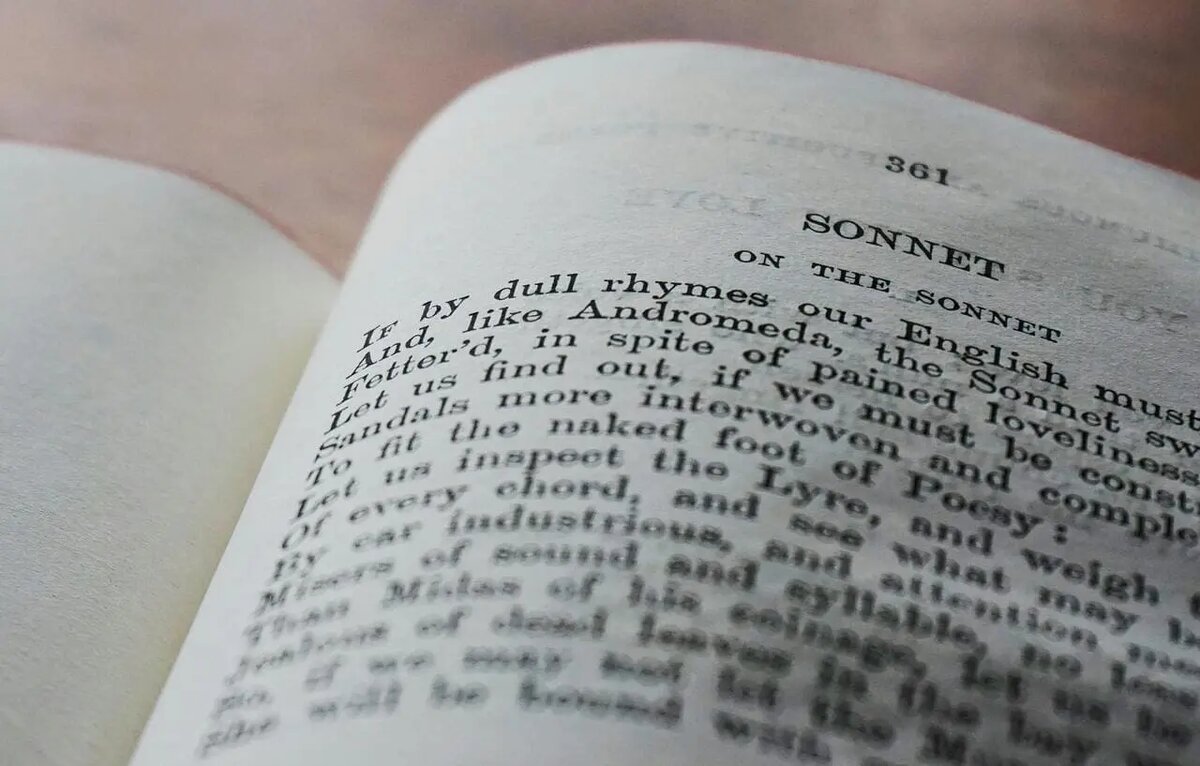 361
SONNET
ON THE SONNET
IF by dull rhymes our English must
And, like Andromeda, the Sonnet sw
Fetter'd, in spite of pained loveliness
Let us find out, if we must be constr
Sandals more interwoven and comple
To fit the naked foot of Poesy :
Let us inspect the Lyre, and weigh
Of every chord, and see what may b
By ear industrious, and attention me
Misers of sound and syllable, no less
Than Midas of his coinage, let us be
Jealous of dead leaves in the bay
So, if we may not let the M
She will be bound with